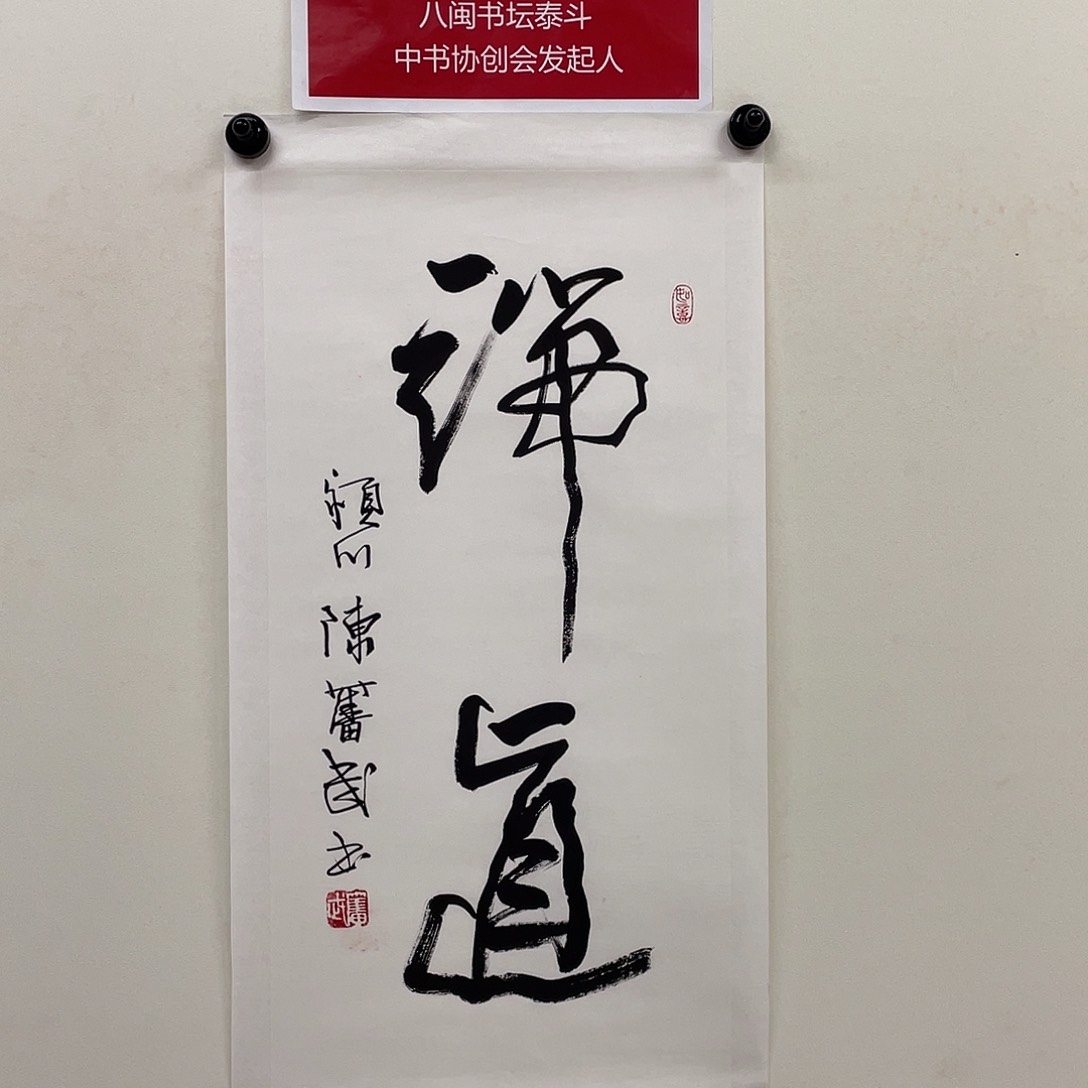 八闽书坛泰斗
中书协创会发起人
禅道
潁川 陳奮武书
奮武